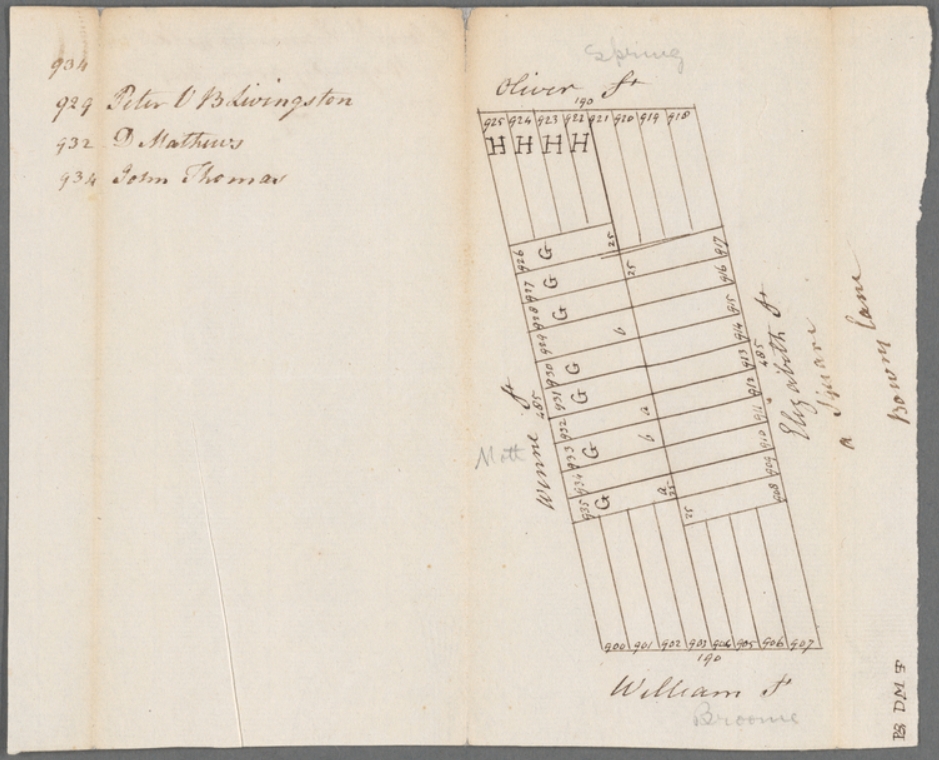 934
929 Peter V B Livingston
932 D Mathews
934 John Thomas
Spring
Oliver St
190
925 924 923 922 921 920 919 918
H H H H
25
25
926 G
927 G
928 G
929 b
930 G
931 G
932 a
933 G b
934
935 G
a
25
25
917
916
915
914
913
912
911
910
909
908
485
Winne St
Mott
485
Elizabeth St
a Square
Bowry Lane
900 901 902 903 904 905 906 907
190
William St
Broome